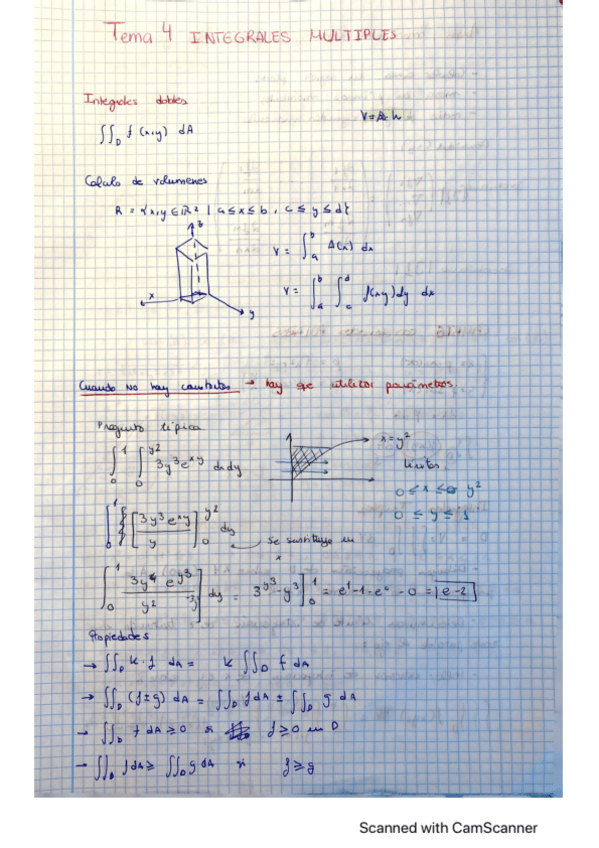 Tema 4 INTEGRALES MULTIPLES
Integrales dobles
∬_D f(x,y) dA
V = A·h
Calculo de volumenes
R = {x,y ∈ ℝ² | a ≤ x ≤ b, c ≤ y ≤ d}
z
x
y
V = ∫_a^b A(x) dx
V = ∫_a^b ∫_c^d f(x,y) dy dx
Cuando no hay → hay que utilizar parámetros.
Pregunta típica
∫_0^1 ∫_0^{y2} 3y³e^{xy} dx dy
1
x = y²
limites
0 ≤ x ≤ y²
0 ≤ y ≤ 1
∫_0^1 [3y³e^{xy} / y]_0^{y2} dy
se sustituye en
x
dy = 3^{y3} - y³]_0^1 = e¹ - 1 - e⁰ - 0 = e - 2
Propiedades
→ ∬_D k·f dA = k ∬_D f dA
→ ∬_D (f ± g) dA = ∬_D f dA ± ∬_D g dA
→ ∬_D f dA ≥ 0 si f ≥ 0 en D
→ ∬_D f dA ≥ ∬_D g dA si f ≥ g
Scanned with CamScanner